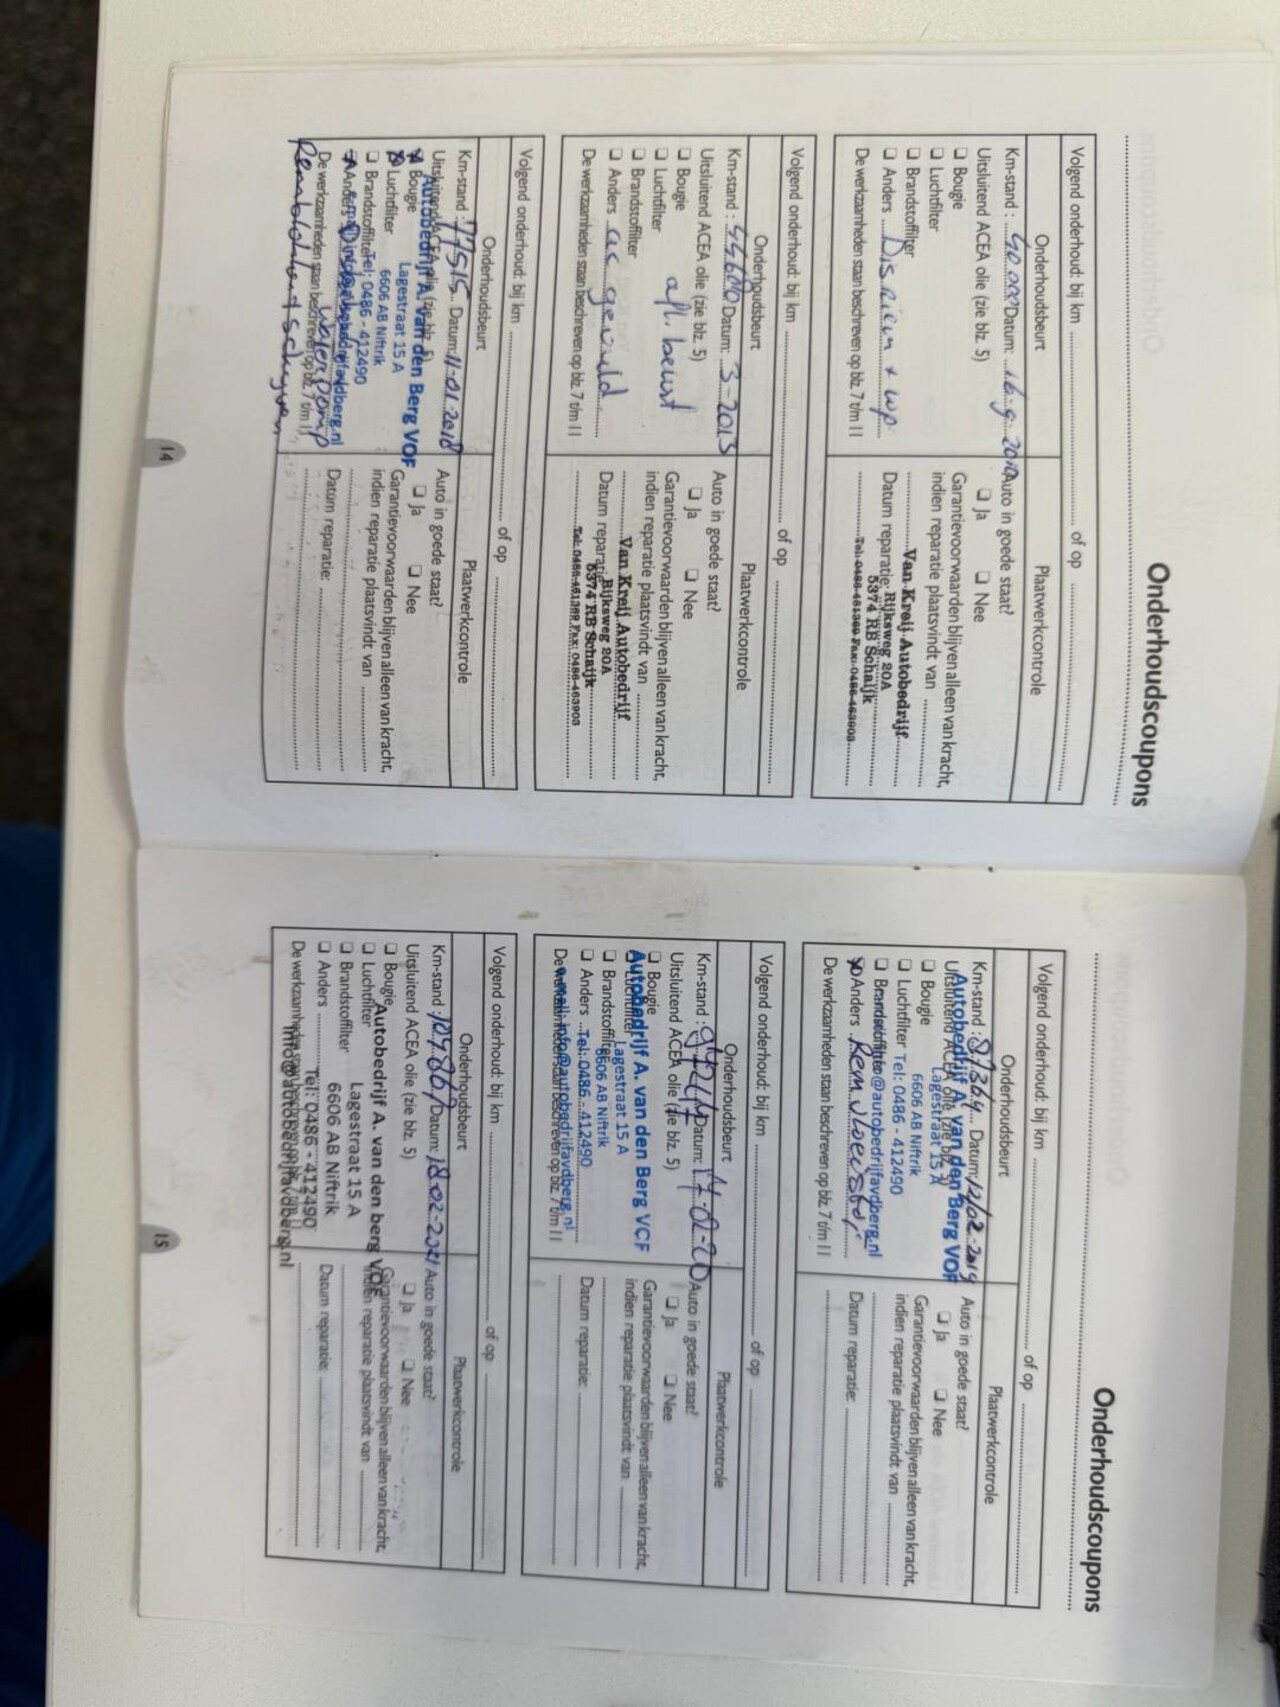 Onderhoudscoupons
Volgend onderhoud: bij km of op
Onderhoudsbeurt Plaatwerkcontrole
Km-stand : 40.000 Datum: 16-9-2010 Auto in goede staat?
Uitsluitend ACEA olie (zie blz. 5) ❑ Ja ❑ Nee
❑ Bougie Garantievoorwaarden blijven alleen van kracht,
❑ Luchtfilter indien reparatie plaatsvindt van
❑ Brandstoffilter Van Kreij Autobedrijf
❑ Anders Disriem + wp. Datum reparatie: Rijksweg 20A
5374 RB Schaijk
De werkzaamheden staan beschreven op blz. 7 t/m 11 Tel: 0486-461369 Fax: 0486-463903
Volgend onderhoud: bij km of op
Onderhoudsbeurt Plaatwerkcontrole
Km-stand : 44600 Datum: 3-2013 Auto in goede staat?
Uitsluitend ACEA olie (zie blz. 5) ❑ Ja ❑ Nee
❑ Bougie afl. beurt Garantievoorwaarden blijven alleen van kracht,
❑ Luchtfilter indien reparatie plaatsvindt van
❑ Brandstoffilter Van Kreij Autobedrijf
❑ Anders ac gevuld Datum reparatie: Rijksweg 20A
5374 RB Schaijk
De werkzaamheden staan beschreven op blz. 7 t/m 11 Tel: 0486-461369 Fax: 0486-463903
Volgend onderhoud: bij km of op
Onderhoudsbeurt Plaatwerkcontrole
Km-stand : 77515 Datum: 11-01-2018 Auto in goede staat?
Uitsluitend ACEA olie (zie blz. 5) ❑ Ja ❑ Nee
Autobedrijf A. van den Berg VOF
Bougie Lagestraat 15 A Garantievoorwaarden blijven alleen van kracht,
Luchtfilter 6606 AB Niftrik indien reparatie plaatsvindt van
❑ Brandstoffilter Tel: 0486 - 412490
Anders Datum reparatie:
waterpomp
De werkzaamheden staan beschreven op blz. 7 t/m 11
14
Onderhoudscoupons
Volgend onderhoud: bij km of op
Onderhoudsbeurt Plaatwerkcontrole
Km-stand : 87364 Datum: 12/02-2019 Auto in goede staat?
Autobedrijf A. van den Berg VOF
Uitsluitend ACEA olie (zie blz. 5) ❑ Ja ❑ Nee
Lagestraat 15 A
❑ Bougie 6606 AB Niftrik Garantievoorwaarden blijven alleen van kracht,
❑ Luchtfilter Tel: 0486 - 412490 indien reparatie plaatsvindt van
❑ Brandstoffilter info@autobedrijfavdberg.nl
Anders Remvloeistof Datum reparatie:
De werkzaamheden staan beschreven op blz. 7 t/m 11
Volgend onderhoud: bij km of op
Onderhoudsbeurt Plaatwerkcontrole
Km-stand : Datum: 17-02-20 Auto in goede staat?
Uitsluitend ACEA olie (zie blz. 5) ❑ Ja ❑ Nee
❑ Bougie Garantievoorwaarden blijven alleen van kracht,
Autobedrijf A. van den Berg VOF
❑ Luchtfilter Lagestraat 15 A indien reparatie plaatsvindt van
❑ Brandstoffilter 6606 AB Niftrik
❑ Anders Tel: 0486 - 412490 Datum reparatie:
e-mail: info@autobedrijfavdberg.nl
De werkzaamheden staan beschreven op blz. 7 t/m 11
Volgend onderhoud: bij km of op
Onderhoudsbeurt Plaatwerkcontrole
Km-stand : Datum: 18-02-2021 Auto in goede staat?
Uitsluitend ACEA olie (zie blz. 5) ❑ Ja ❑ Nee
❑ Bougie Garantievoorwaarden blijven alleen van kracht,
Autobedrijf A. van den berg VOF
❑ Luchtfilter Lagestraat 15 A indien reparatie plaatsvindt van
❑ Brandstoffilter 6606 AB Niftrik
❑ Anders Tel: 0486 - 412490 Datum reparatie:
De werkzaamheden staan beschreven op blz. 7 t/m 11
info@autobedrijfavdberg.nl
15